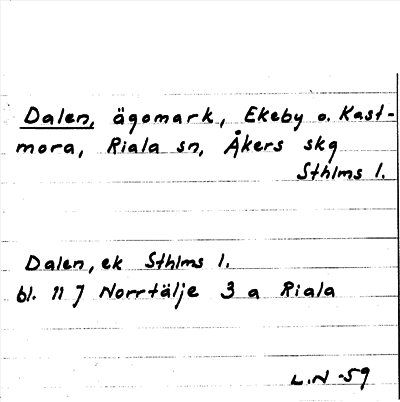 Dalen, ägomark, Ekeby o. Kast-
mora, Riala sn, Åkers skg
Sthlms l.
Dalen, ek Sthlms l.
bl. 11 J Norrtälje 3 a Riala
L.N -59